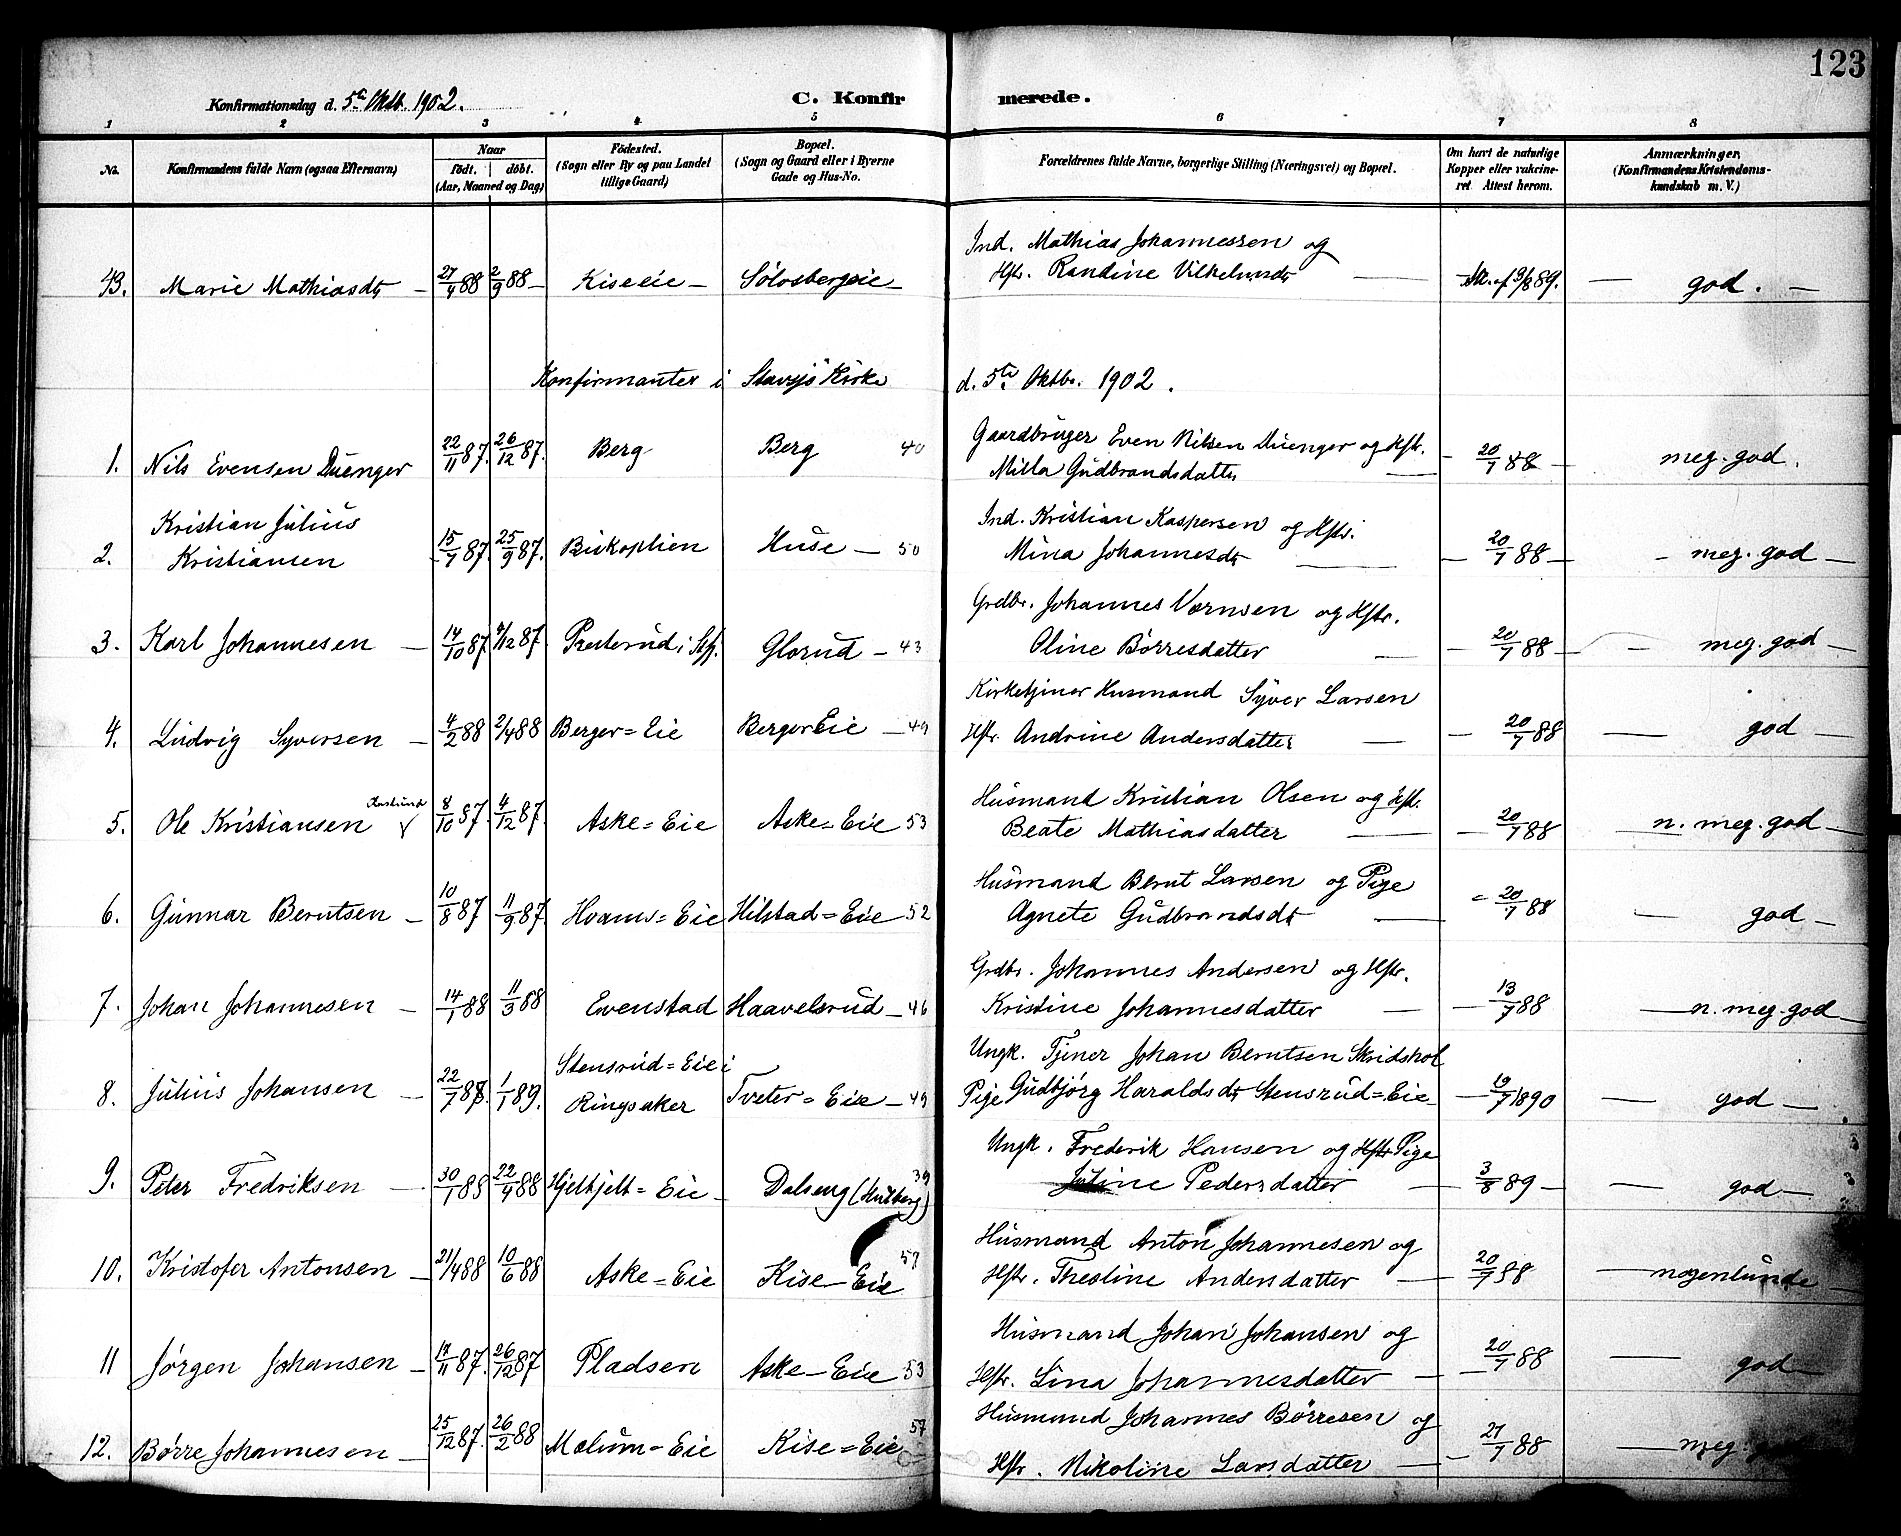 123
Konfirmationsdag d. 5te Oktb. 1902.
C. Konfirmerede.
1 2 3 4 5 6 7 8
No.
Konfirmandens fulde Navn (ogsaa Efternavn)
Naar
födt. döbt.
(Aar, Maaned og Dag)
Födested.
(Sogn eller By og paa Landet
tillige Gaard)
Bopæl.
(Sogn og Gaard eller i Byerne
Gade og Hus-No.
Forældrenes fulde Navne, borgerlige Stilling (Næringsvei) og Bopæl.
Om havt de naturlige
Kopper eller vakcine-
ret Attest herom.
Anmærkninger,
(Konfirmandens Kristendoms-
kundskab m. V.)
Ind. Mathias Johannessen og
43. Marie Mathiasdt – 27/4 88 2/9 88 – Kiseeie – Sölvsbergeie – Hstr. Randine Vilhelmsdt – At. af 9/8 89. – god. –
Konfirmanter i Stavsjö Kirke d. 5te Oktbr. 1902.
Gaardbruger Even Nilsen Duenger og Hstr.
1. Nils Evensen Duenger 22/11 87. 26/12 87. Berg Berg 40 Milla Gudbrandsdatter – 20/7 88 – meg. god.
Kristian Julius Ind. Kristian Kaspersen og Hstr.
2. Kristiansen 15/7 87. 25/9 87. Huse – 50 Mina Johannesdt – 20/7 88 – meg. god –
Grdbr. Johannes Larsen og Hstr.
3. Karl Johannesen – 14/10 87 /12 87. Presterud i Glorud – 43 Oline Börresdatter – 20/7 88 – meg. god –
Kirketjener Husmand Syver Larsen
4. Ludvig Syversen – 4/2 88 2/4 88 Berger=Eie Berger Eie – 49 Hstr. Andrine Andersdatter – 20/7 88 – god –
Husmand Kristian Olsen og Hstr.
5. Ole Kristiansen 8/10 87. 4/12 87. Aske=Eie Aske=Eie 53 Beate Mathiasdatter – 20/7 88 – n. meg. god –
Husmand Bernt Larsen og Pige
6. Gunnar Berntsen – 10/8 87 11/9 87. Hvams=Eie Hilstad=Eie 52 Agnete Gudbrandsdt – 20/7 88 – god –
Grdbr. Johannes Andersen og Hstr.
7. Johan Johannesen – 14/1 88 11/3 88 Evenstad Haavelsrud – 46 Kristine Johannesdatter – 13/7 88 – n. meg. god –
Stensrud=Eie i Ungk. Tjener Johan Berntsen Skridshol
8. Julius Johansen – 22/7 87. 1/1 89. Ringsaker Tveter=Eie – 49 Pige Gudbjörg Haraldsdt Stensrud=Eie – 19/7 1890 – god –
Ungk. Frederik Hansen og Hstr Pige
9. Peter Fredriksen – 30/1 88 22/4 88 Hjelkjelt=Eie – Dalseng 39 Pedersdatter – 3/8 89 – god –
Husmand Anton Johannesen og
10. Kristofer Antonsen – 21/4 88 10/6 88 Aske=Eie Kise – Eie 57 Hstr. Theoline Andersdatter – 20/7 88 – nogenlunde
Husmand Johan Johansen og
11 Jörgen Johansen – /11 87. 26/12 87 Pladsen Aske – Eie 53 Hstr. Lina Johannesdatter – 20/7 88 – god
Husmand Johannes Börresen og
12. Börre Johannesen – 25/12 87. 26/2 88 Mælum=Eie Kise=Eie 57 Hstr. Nikoline Larsdatter – 27/7 88 – meg. god